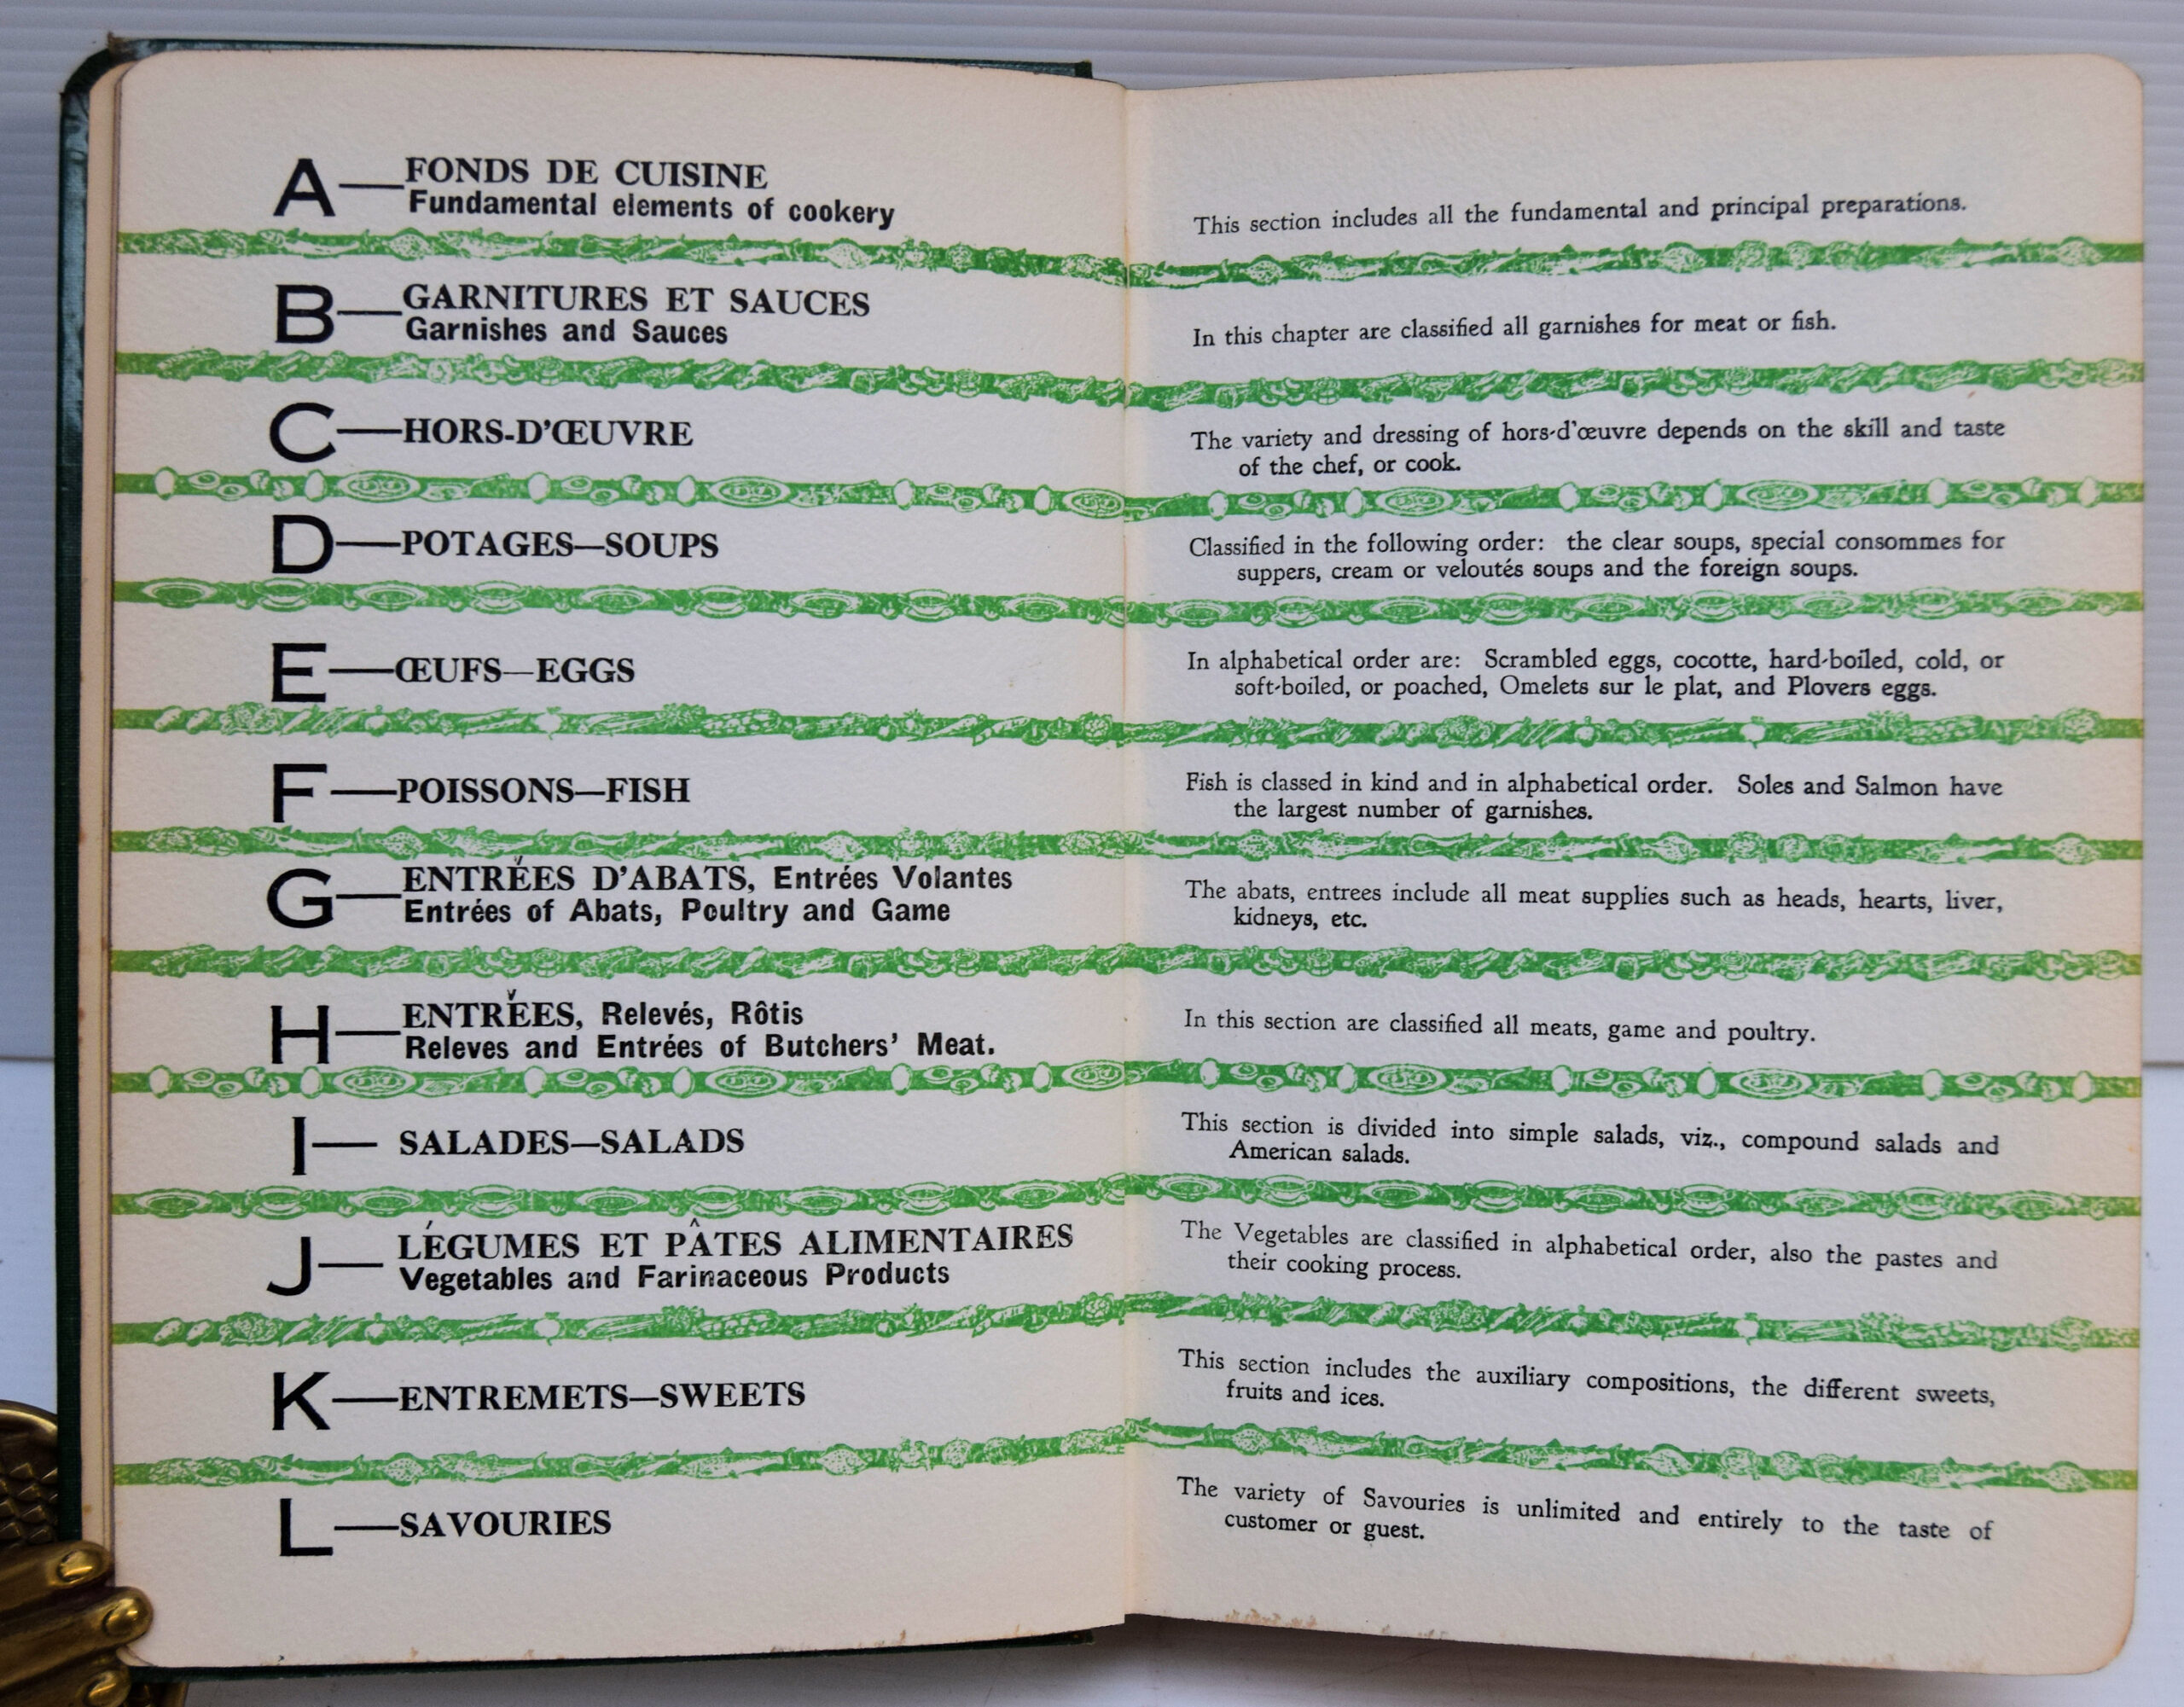 A—FONDS DE CUISINE
Fundamental elements of cookery
B—GARNITURES ET SAUCES
Garnishes and Sauces
C—HORS-D'ŒUVRE
D—POTAGES—SOUPS
E—ŒUFS—EGGS
F—POISSONS—FISH
G—ENTRÉES D'ABATS, Entrées Volantes
Entrées of Abats, Poultry and Game
H—ENTRÉES, Relevés, Rôtis
Releves and Entrées of Butchers' Meat.
I—SALADES—SALADS
J—LÉGUMES ET PÂTES ALIMENTAIRES
Vegetables and Farinaceous Products
K—ENTREMETS—SWEETS
L—SAVOURIES
This section includes all the fundamental and principal preparations.
In this chapter are classified all garnishes for meat or fish.
The variety and dressing of hors-d'œuvre depends on the skill and taste
of the chef, or cook.
Classified in the following order: the clear soups, special consommes for
suppers, cream or veloutés soups and the foreign soups.
In alphabetical order are: Scrambled eggs, cocotte, hard-boiled, cold, or
soft-boiled, or poached, Omelets sur le plat, and Plovers eggs.
Fish is classed in kind and in alphabetical order. Soles and Salmon have
the largest number of garnishes.
The abats, entrees include all meat supplies such as heads, hearts, liver,
kidneys, etc.
In this section are classified all meats, game and poultry.
This section is divided into simple salads, viz., compound salads and
American salads.
The Vegetables are classified in alphabetical order, also the pastes and
their cooking process.
This section includes the auxiliary compositions, the different sweets,
fruits and ices.
The variety of Savouries is unlimited and entirely to the taste of
customer or guest.